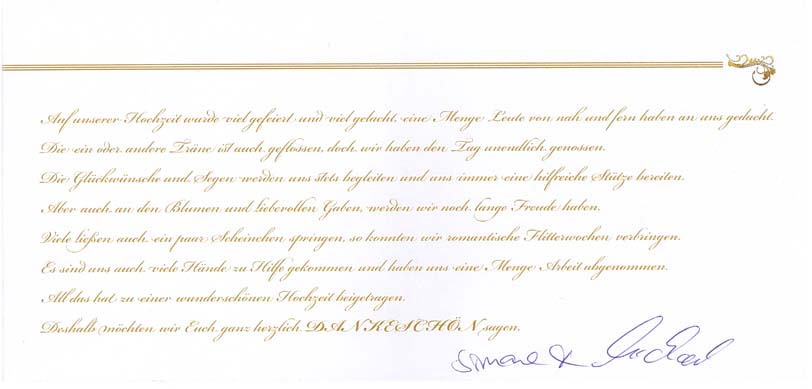 Auf unserer Hochzeit wurde viel gefeiert und viel gelacht, eine Menge Leute von nah und fern haben an uns gedacht.
Die ein oder andere Träne ist auch geflossen, doch wir haben den Tag unendlich genossen.
Die Glückwünsche und Segen werden uns stets begleiten und uns immer eine hilfreiche Stütze bereiten.
Aber auch an den Blumen und liebevollen Gaben, werden wir noch lange Freude haben.
Viele ließen auch ein paar Scheinchen springen, so konnten wir romantische Flitterwochen verbringen.
Es sind uns auch viele Hände zu Hilfe gekommen und haben uns eine Menge Arbeit abgenommen.
All das hat zu einer wunderschönen Hochzeit beigetragen.
Deshalb möchten wir Euch ganz herzlich DANKESCHÖN sagen.
Simone & Michael